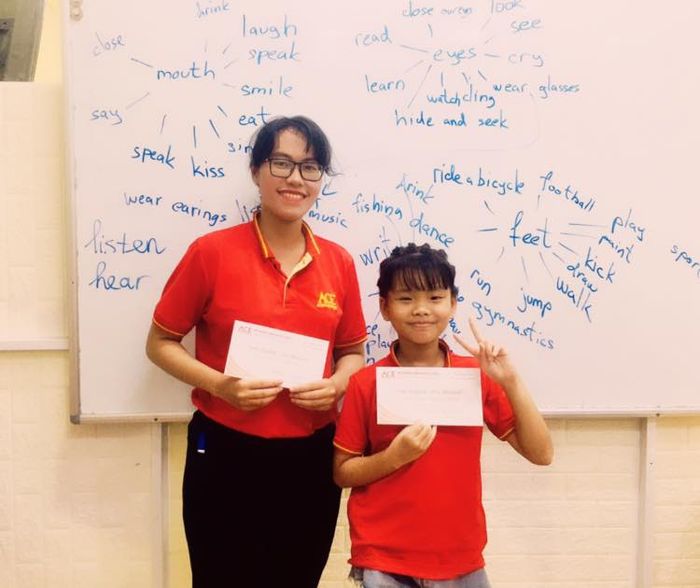 drink
close
laugh
speak
mouth
smile
say
eat
speak
kiss
close our eyes
look
see
read
eyes
cry
learn
watch
cling
wear glasses
hide and seek
wear earings
music
listen
hear
fishing
drink
dance
ride a bicycle
football
play
feet
paint
kick
draw
walk
run
jump
gymnastics
play
ACE
ACE
ACE